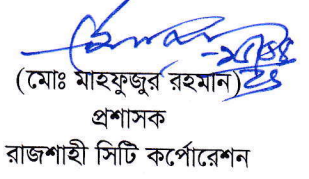 (মোঃ মাহফুজুর রহমান)
প্রশাসক
রাজশাহী সিটি কর্পোরেশন